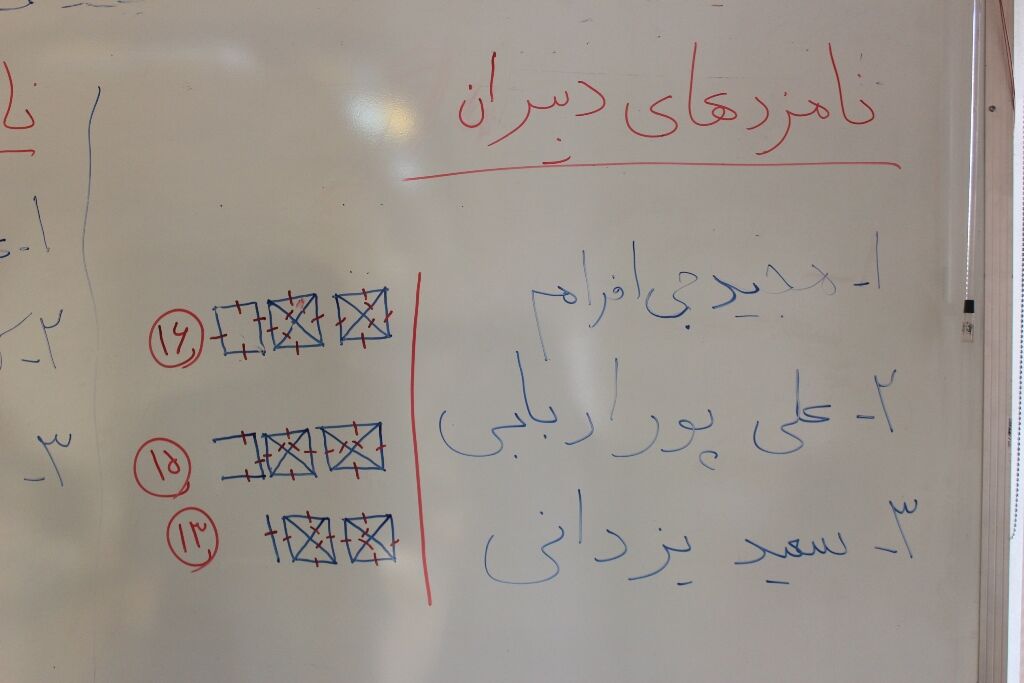 نامزدهای دبیران
۱- مجید جی افرام ۱۶
۲- علی پور اربابی ۱۵
۳- سعید یزدانی ۱۳
نا
۱-
۲-
۳-